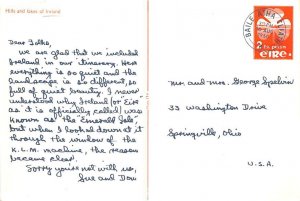 Hills and lakes of Ireland
Dear Folks,
We are glad that we included
Ireland in our itinerary. Here
everything is so quiet and the
landscape is so different, so
full of quiet beauty. I never
understood why Ireland (or Eire
as it is officially called) was
known as the "Emerald Isle",
but when I looked down at it
through the window of the
K.L.M. machine, the reason
became clear.
Sorry you're not with us,
Sue and Don
BAILE ÁTHA
2 1/2 pingin
éIRe
Mr. and Mrs. George Spelvin
33 Washington Drive
Springville, Ohio
U.S.A.